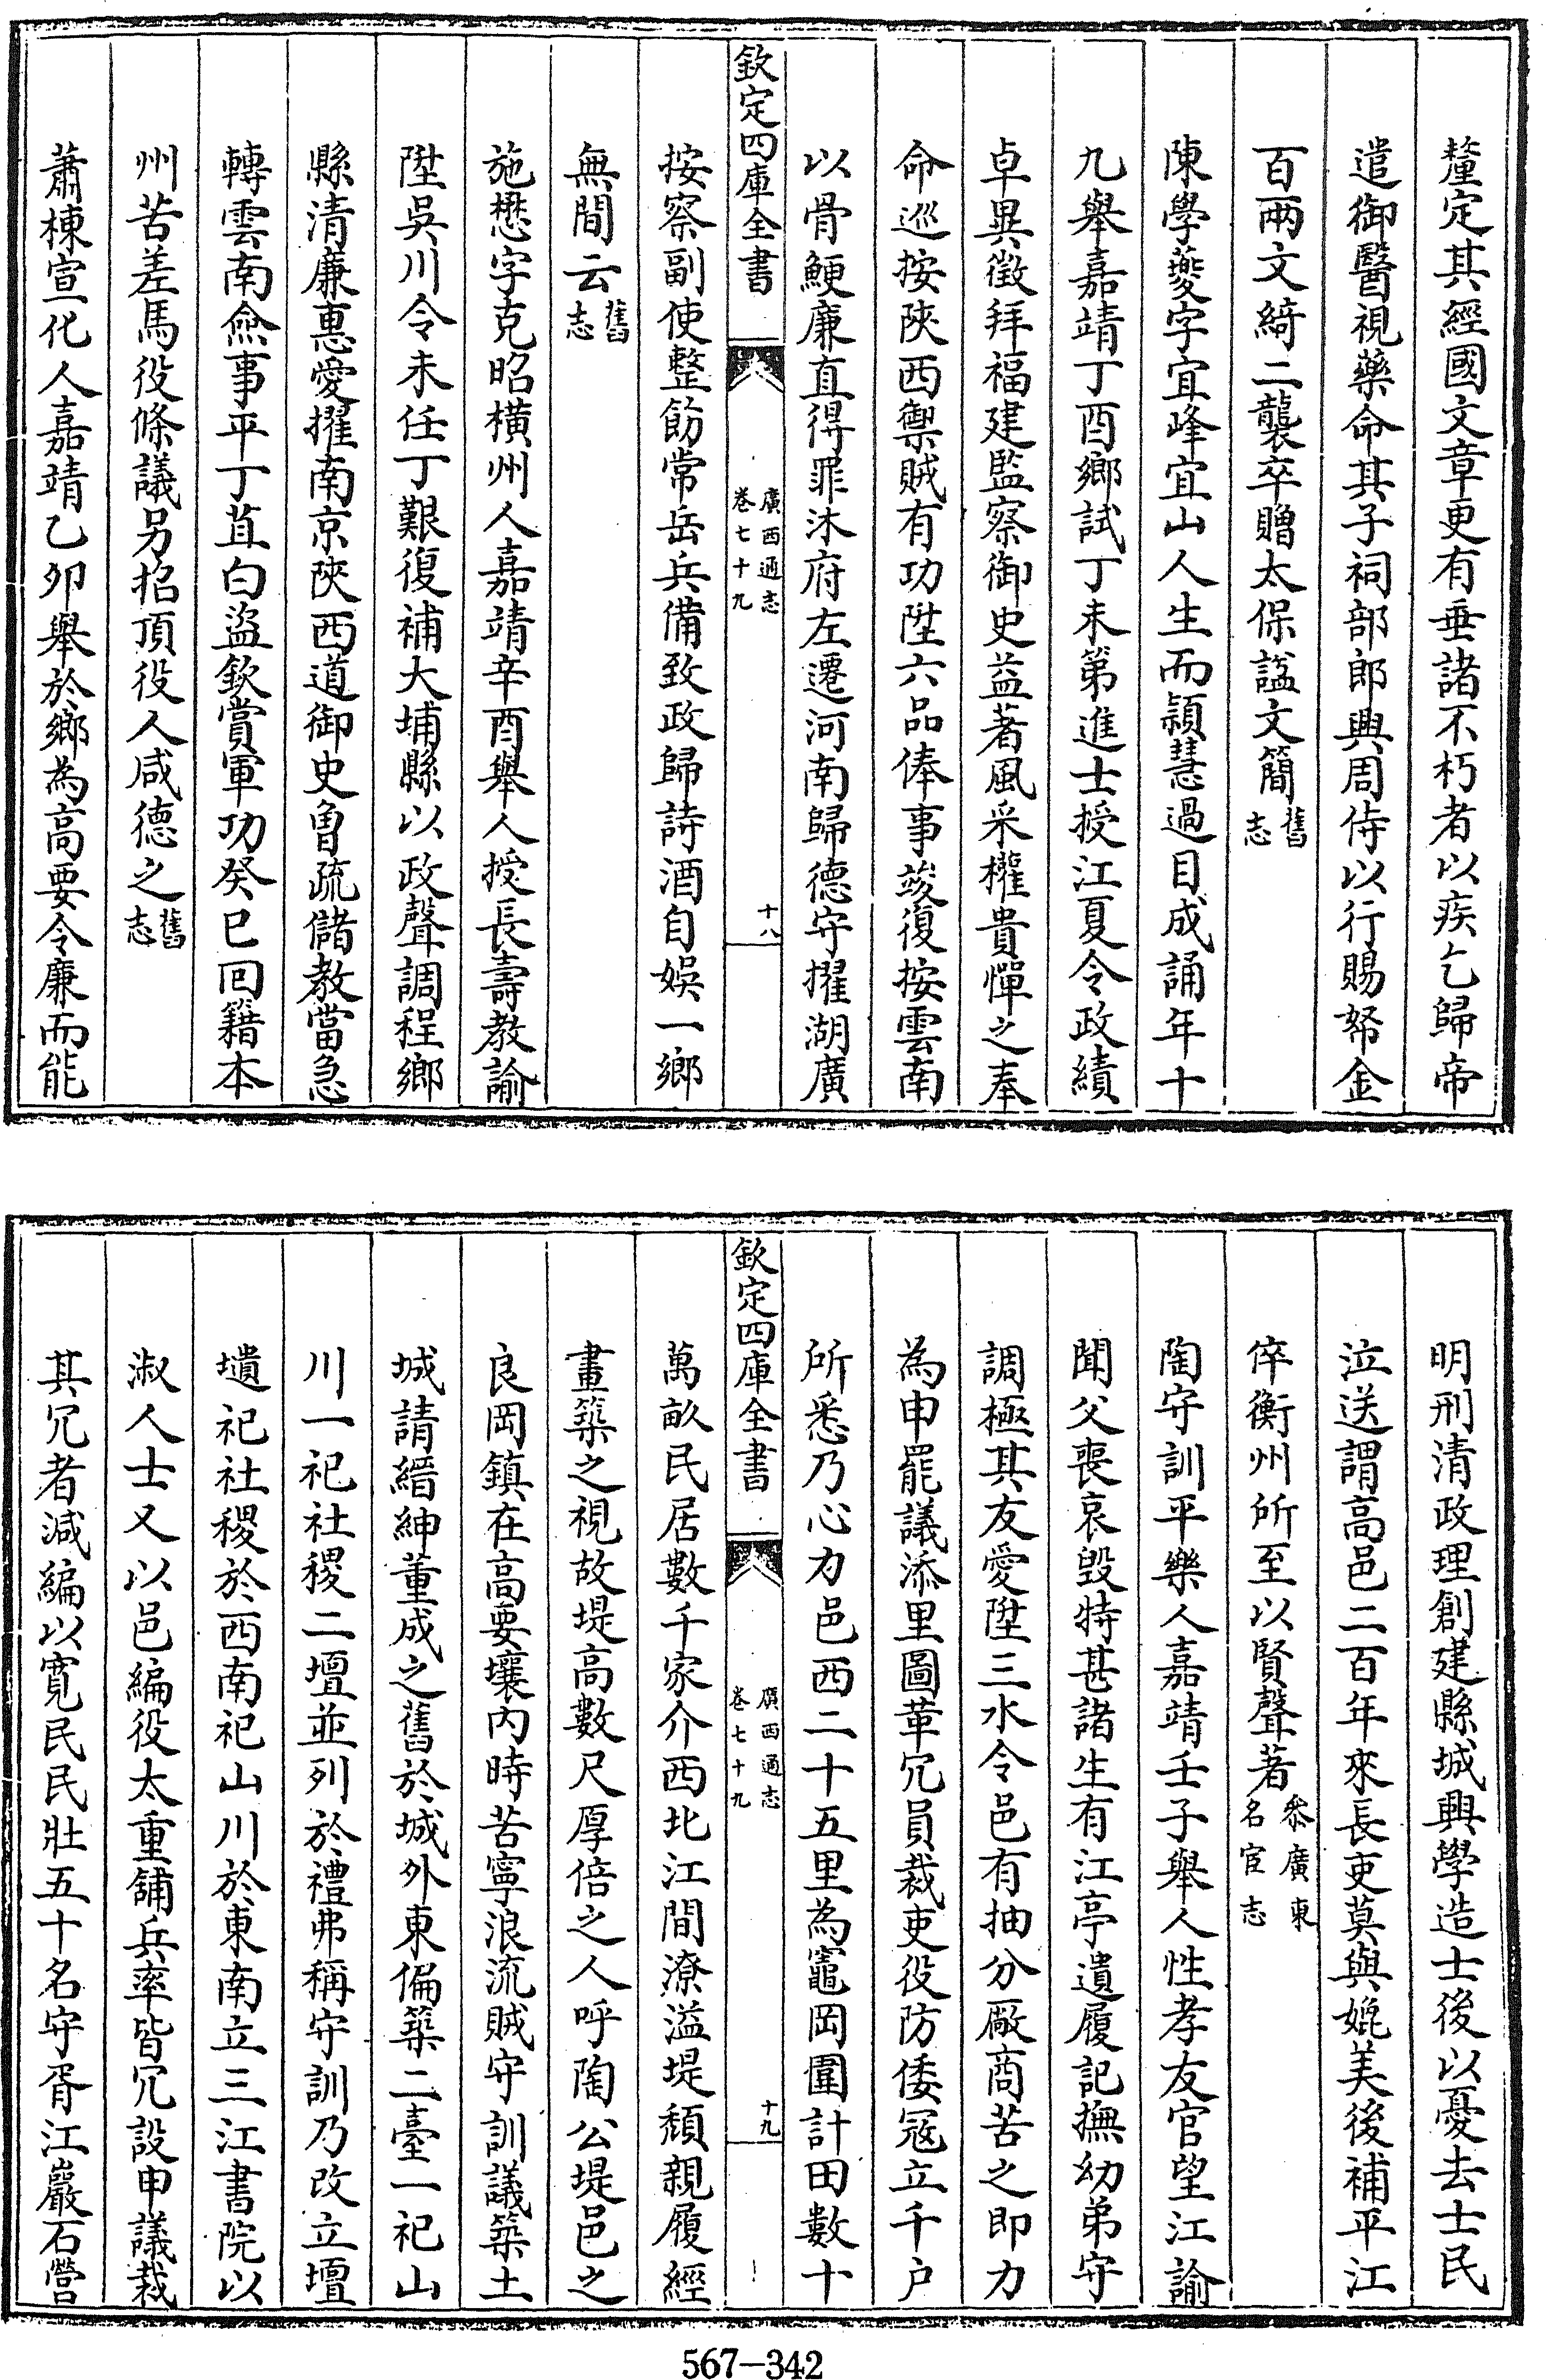 釐定其經國文章更有垂諸不朽者以疾乞歸帝
遣御醫視藥命其子祠部郎興周侍以行賜帑金
百兩文綺二襲卒贈太保諡文簡舊志
陳學夔字宜峰宜山人生而頴慧過目成誦年十
九舉嘉靖丁酉鄉試丁未第進士授江夏令政績
卓異徵拜福建監察御史益著風采權貴憚之奉
命巡按陜西禦賊有功陞六品俸事竣復按雲南
以骨鯁廉直得罪沐府左遷河南歸德守擢湖廣
欽定四庫全書 廣西通志 卷七十九 十八
按察副使整飭常岳兵備致政歸詩酒自娛一鄉
無間云舊志
施懋字克昭橫州人嘉靖辛酉舉人授長壽教諭
陞吳川令未任丁艱復補大埔縣以政聲調程鄉
縣清廉惠愛擢南京陜西道御史曾疏儲教當急
轉雲南僉事平丁苴白盜欽賞軍功癸巳回籍本
州苦差馬役條議另招頂役人咸德之舊志
蕭棟宣化人嘉靖乙卯舉於鄉為高要令廉而能
明刑清政理創建縣城興學造士後以憂去士民
泣送謂高邑二百年來長吏莫與媲美後補平江
倅衡州所至以賢聲著叅廣東名宦志
陶守訓平樂人嘉靖壬子舉人性孝友官望江諭
聞父喪哀毀特甚諸生有江亭遺履記撫幼弟守
調極其友愛陞三水令邑有抽分厰商苦之即力
為申罷議添里圖革冗員裁吏役防倭寇立千户
所悉乃心力邑西二十五里為竈岡圍計田數十
欽定四庫全書 廣西通志 卷七十九 十九
萬畝民居數千家介西北江間潦溢堤頹親履經
畫築之視故堤高數尺厚倍之人呼陶公堤邑之
良岡鎮在高要壤內時苦寧浪流賊守訓議築土
城請縉紳董成之舊於城外東偏築二臺一祀山
川一祀社稷二壇並列於禮弗稱守訓乃改立壇
壝祀社稷於西南祀山川於東南立三江書院以
淑人士又以邑編役太重鋪兵率皆冗設申議裁
其冗者減編以寬民民壯五十名守胥江巖石營
567-342